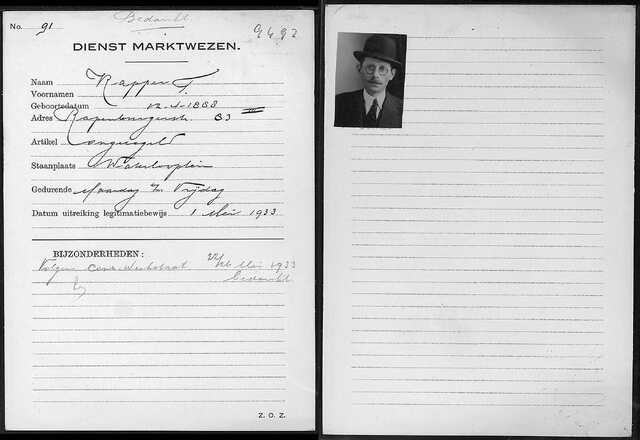 Bedankt
No. 91
9692
DIENST MARKTWEZEN.
Naam Rapper
Voornamen
Geboortedatum 12-4-1888
Adres Rapenburgerstr. 83 III
Artikel ongeregeld
Staanplaats Waterlooplein
Gedurende Maandag t/m Vrijdag
Datum uitreiking legitimatiebewijs 1 Mei 1933
BIJZONDERHEDEN:
Volgens 26 Mei 1933
bedankt
Z. O. Z.